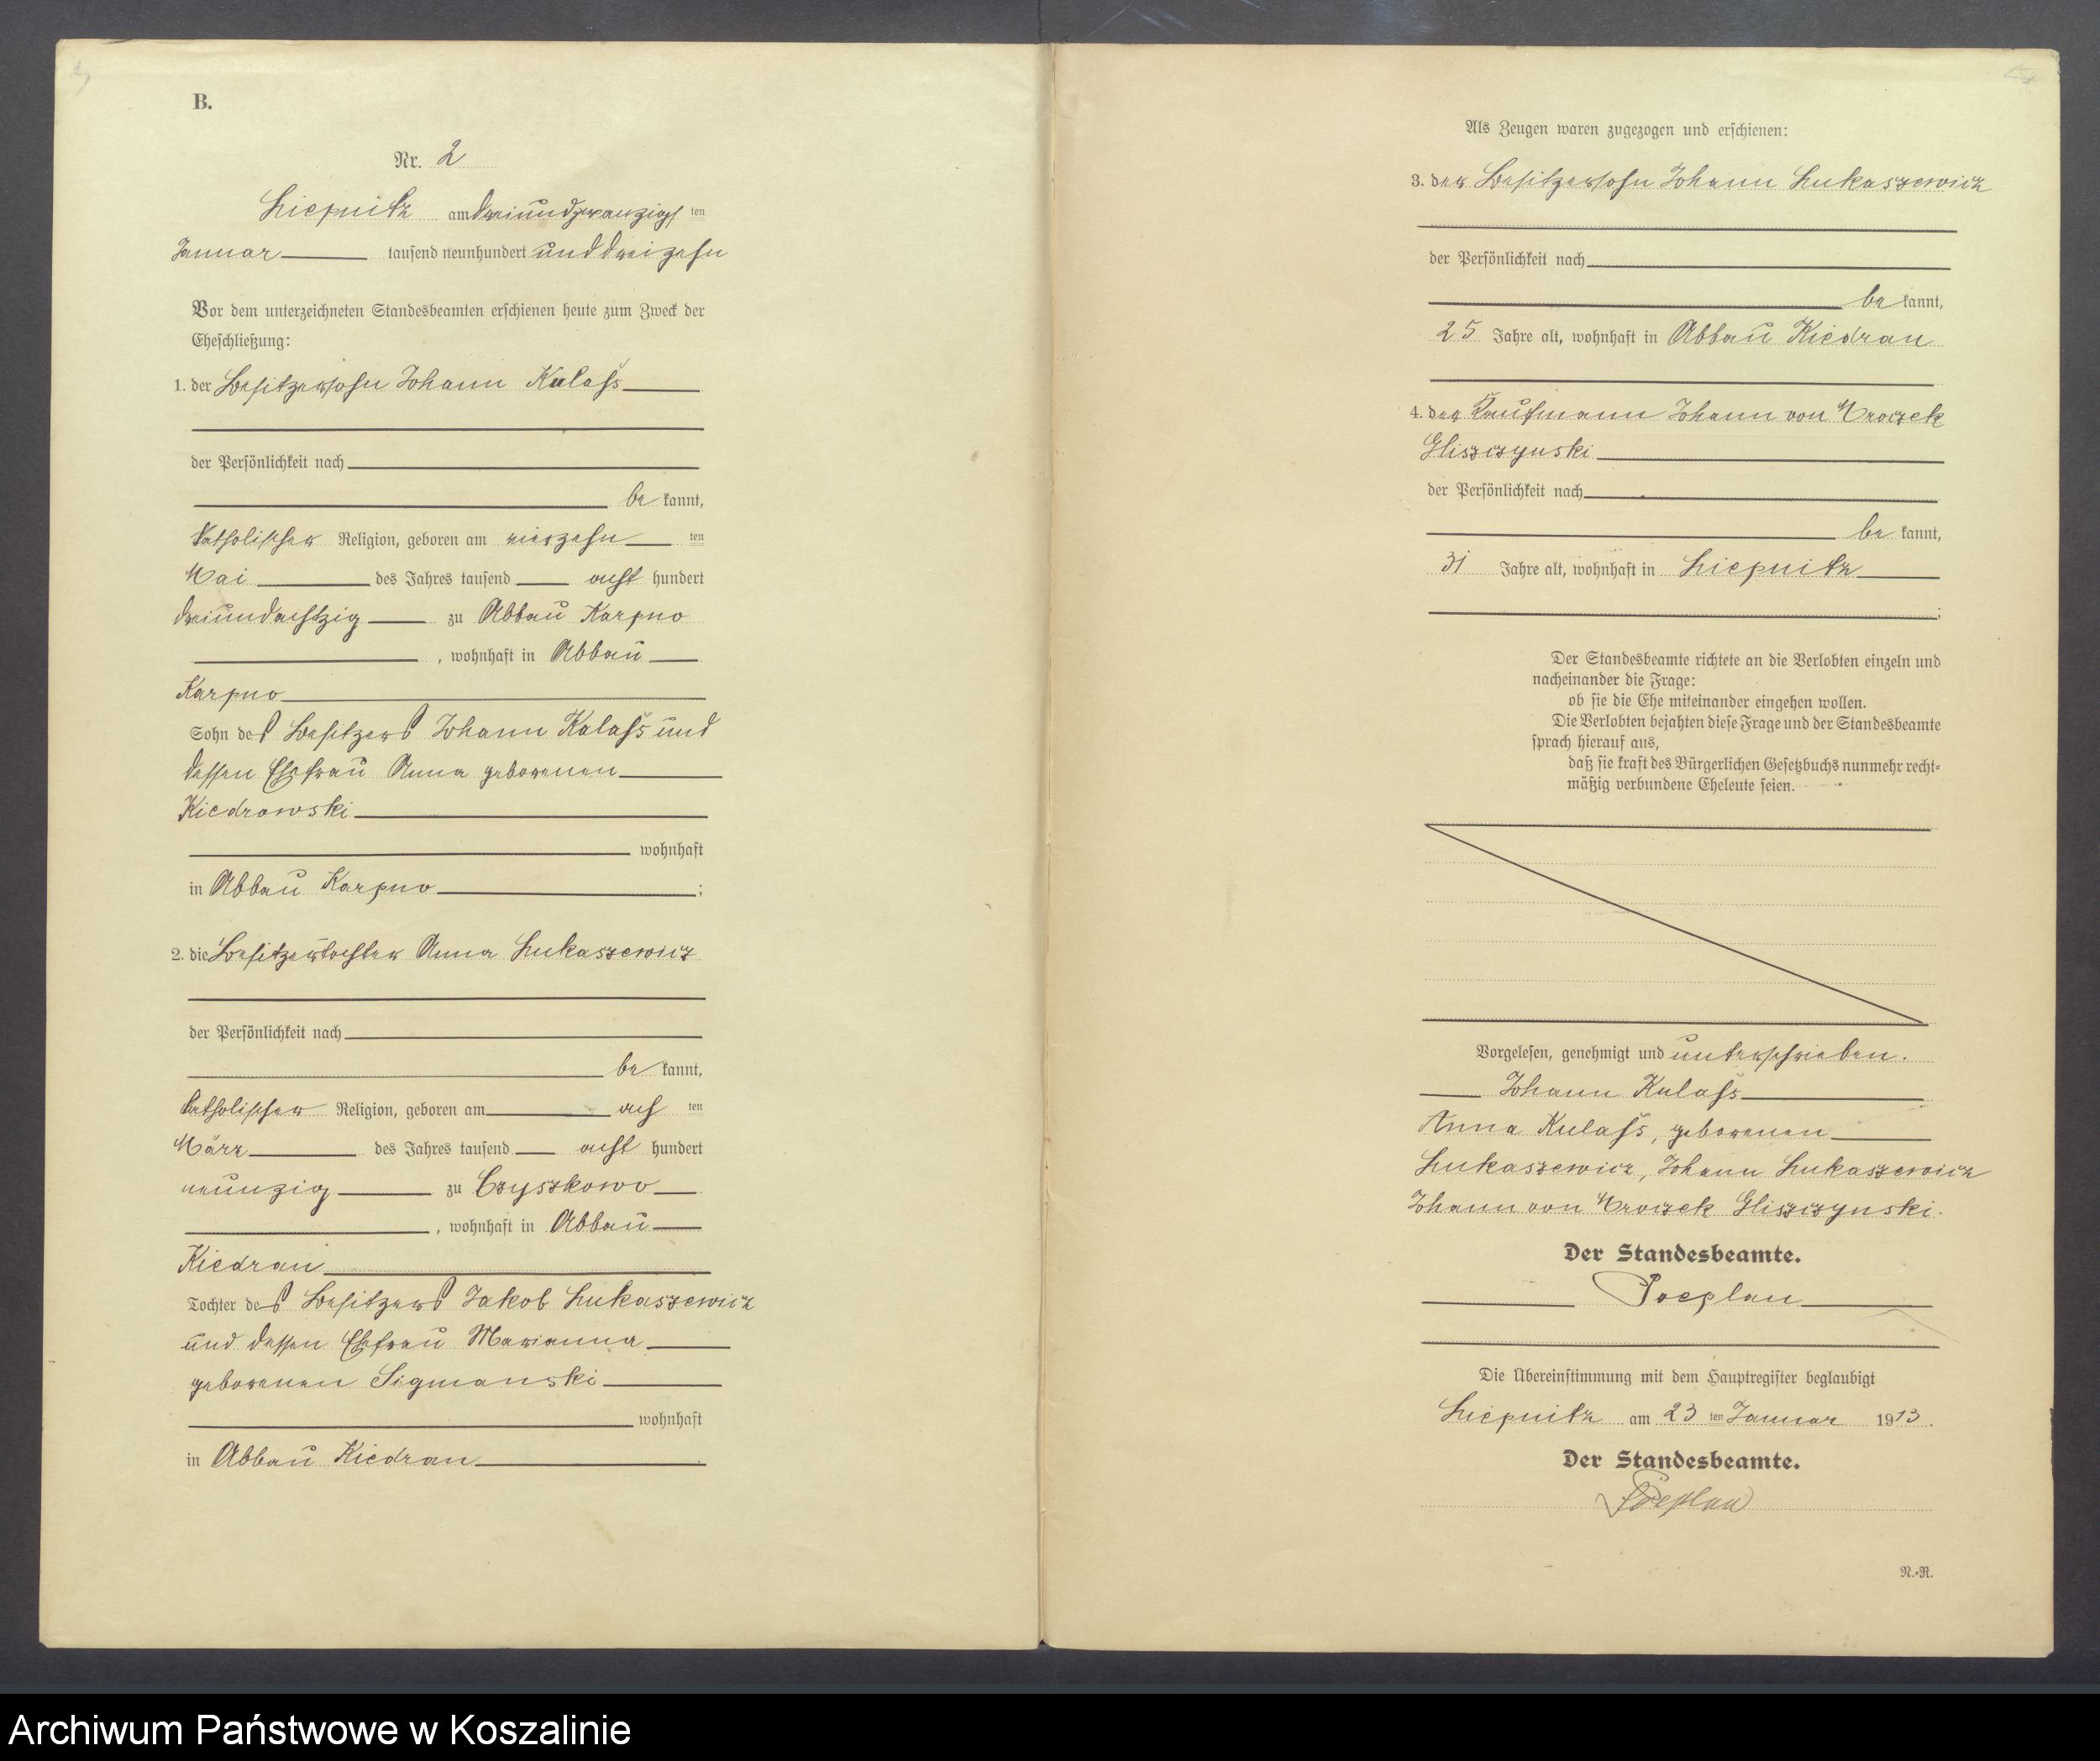 B.
Nr. 2
Liepnitz am dreiundzwanzigs ten
Januar tausend neunhundert und dreizehn
Vor dem unterzeichneten Standesbeamten erschienen heute zum Zweck der
Eheschließung:
1. der Besitzersohn Johann Kulass
der Persönlichkeit nach
be kannt,
katholischer Religion, geboren am vierzehn ten
Mai des Jahres tausend acht hundert
dreiundachtzig zu Abbau Karpno
, wohnhaft in Abbau
Karpno
Sohn des Besitzers Johann Kulass und
dessen Ehefrau Anna geborenen
Kiedrowski
wohnhaft
in Abbau Karpno ;
2. die Besitzertochter Anna Lukaszewicz
der Persönlichkeit nach
be kannt,
katholischer Religion, geboren am ach ten
März des Jahres tausend acht hundert
neunzig zu Czyszkowo
, wohnhaft in Abbau
Kiedrau
Tochter des Besitzers Jakob Lukaszewicz
und dessen Ehefrau Marianna
geborenen Sigmanski
wohnhaft
in Abbau Kiedrau
Als Zeugen waren zugezogen und erschienen:
3. der Besitzersohn Johann Lukaszewicz
der Persönlichkeit nach
be kannt,
25 Jahre alt, wohnhaft in Abbau Kiedrau
4. der Kaufmann Johann von Mroczek
Gliszczynski
der Persönlichkeit nach
be kannt,
31 Jahre alt, wohnhaft in Liepnitz
;
Der Standesbeamte richtete an die Verlobten einzeln und
nacheinander die Frage:
ob sie die Ehe miteinander eingehen wollen.
Die Verlobten bejahten diese Frage und der Standesbeamte
sprach hierauf aus,
daß sie kraft des Bürgerlichen Gesetzbuchs nunmehr recht-
mäßig verbundene Eheleute seien.
Vorgelesen, genehmigt und unterschrieben.
Johann Kulass
Anna Kulass, geborenen
Lukaszewicz, Johann Lukaszewicz
Johann von Mroczek Gliszczynski.
Der Standesbeamte.
Poeplau
Die Übereinstimmung mit dem Hauptregister beglaubigt
Liepnitz am 23 ten Januar 1913.
Der Standesbeamte.
Poeplau
N.-R.
Archiwum Państwowe w Koszalinie